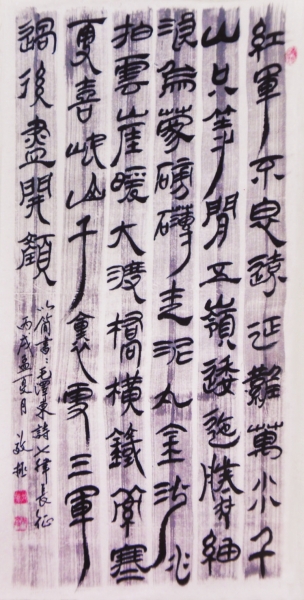 紅軍不怕遠征難萬水千
山只等閒五嶺逶迤騰細
浪烏蒙磅礴走泥丸金沙水
拍雲崖暖大渡橋橫鐵索寒
更喜岷山千里雪三軍
過後盡開顏
以簡書:毛澤東詩七律長征
丙戌孟夏月